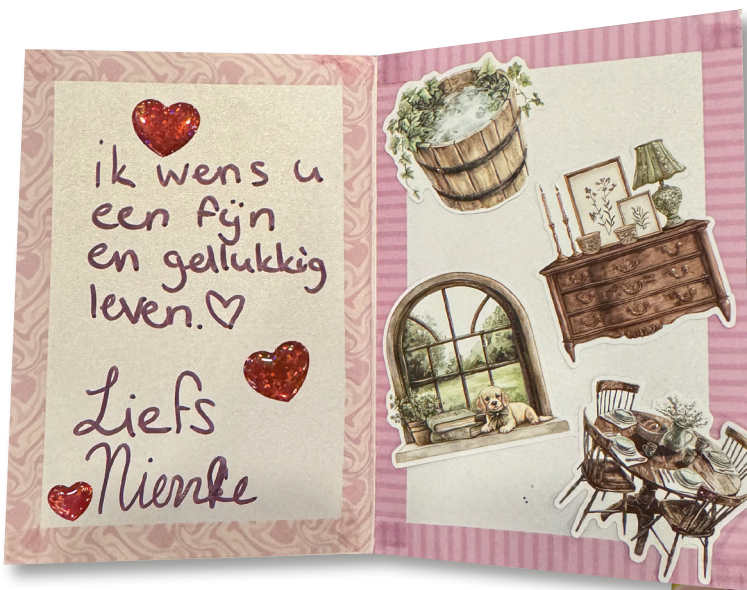 ik wens u
een fijn
en gellukkig
leven.♡
Liefs
Nienke